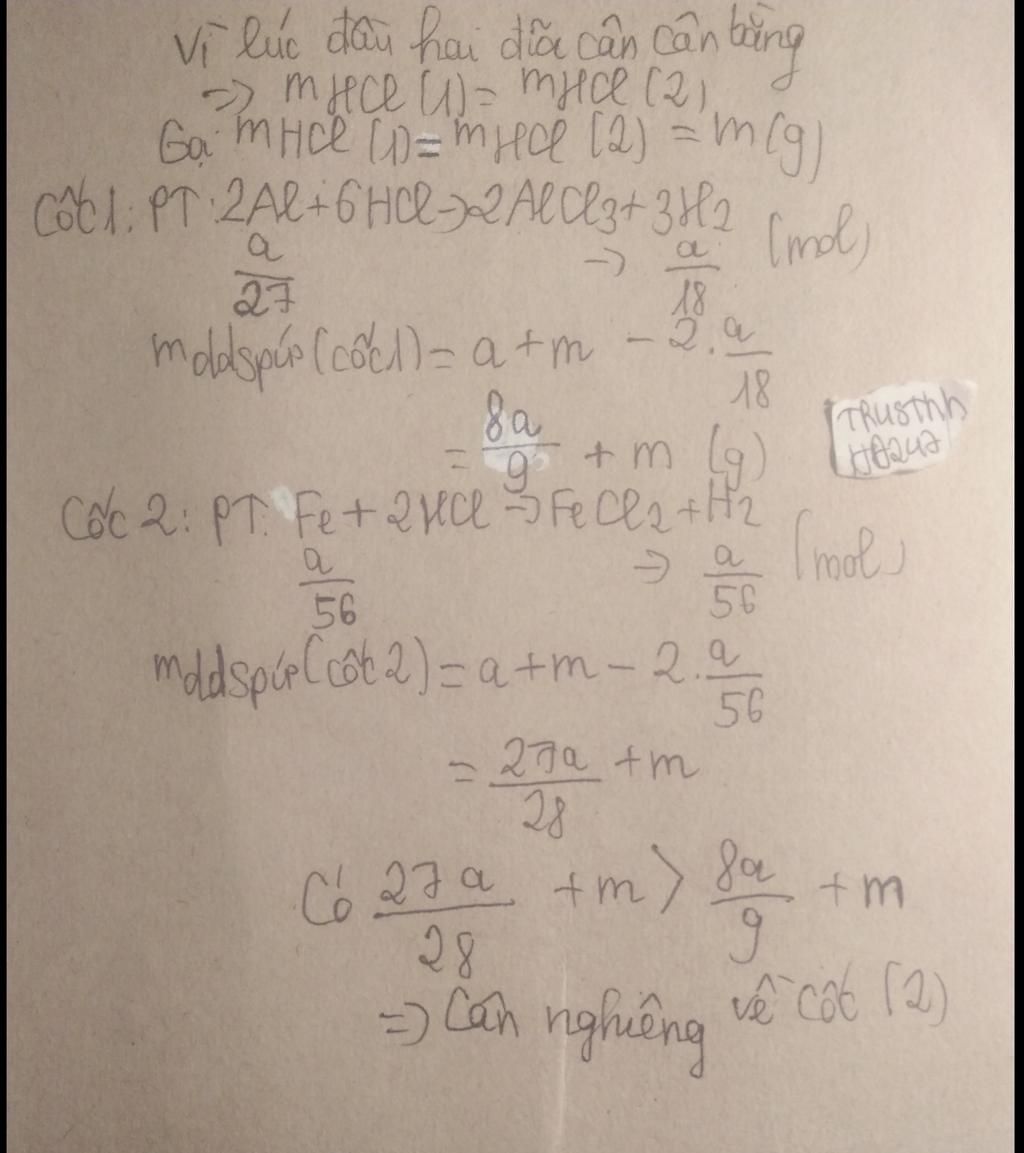 Vì lúc đầu hai đĩa cân cân bằng
=> mHCl (1) = mHCl (2)
Gọi mHCl (1) = mHCl (2) = m(g)
Cốc 1: PT: 2Al + 6HCl → 2AlCl3 + 3H2
a/27 → a/18 (mol)
mddspứ (cốc 1) = a + m - 2. a/18
= 8a/9 + m (g)
TRUSThh
HA247
Cốc 2: PT: Fe + 2HCl → FeCl2 + H2
a/56 → a/56 (mol)
mddspứ (cốc 2) = a + m - 2. a/56
= 27a/28 + m
Có 27a/28 + m > 8a/9 + m
=> Cân nghiêng về cốc (2)